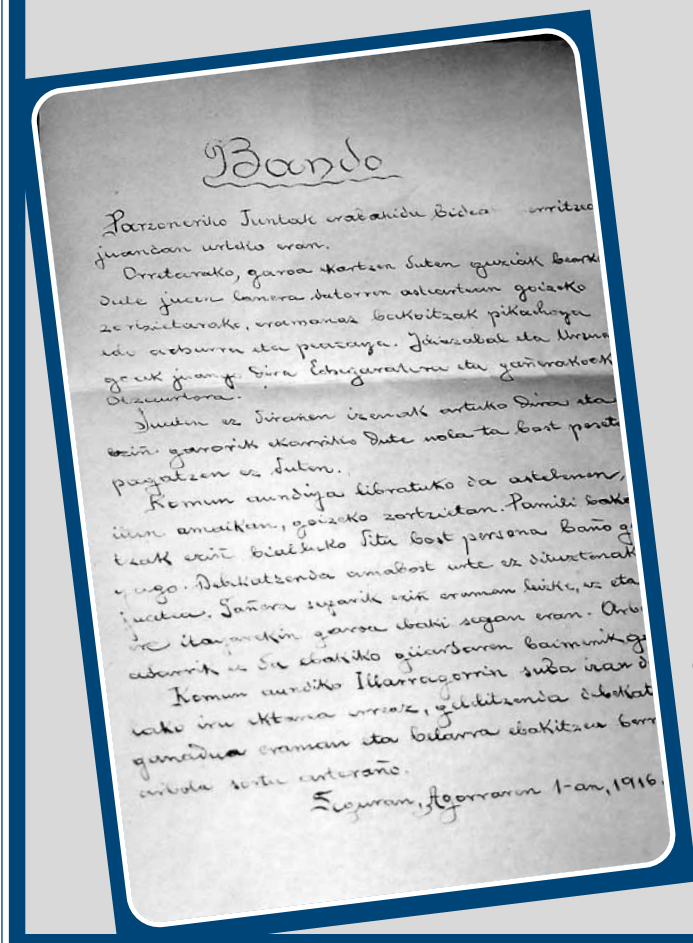 Bando
Parzoneriko Juntak erabakidu bidea erritzea
juandan urteko eran.
Orretarako, garoa ekartzen duten guziak beark
dute jucen lanera datorren asteartean goizeko
zortzietarako, eramanaz bakoitzak pikachoya
edo acburra eta Idiazabal eta
juango dira Echegaratera eta gañerakoek
Otzaurtera.
Juaten ez diranen izenak artuko dira eta
eziñ garorik ekarriko dute nola ta bost pezeta
pagatzen ez duten.
Komun aundiya libratuko da astelenen,
illun amaikan, goizeko zortzietan. Pamili bako
tzak eziñ bialduko ditu bost persona baño g
yago. Debekatzenda amabost urte ez dituztenak
juatia. Gañera suparik eziñ eraman leizke, ez eta
ere itayarekin garoa ebaki segan eran. Arbo
adarrik ez da ebakiko guardaren baimenik g
Komun aundiko Illarragorrin suba izan d
lako iru ektaria erreaz, gelditzenda debekat
ganadua eraman eta belarra ebakitzea berr
arbola sortu arteraño.
Seguran, Agorraren 1-an, 1916.